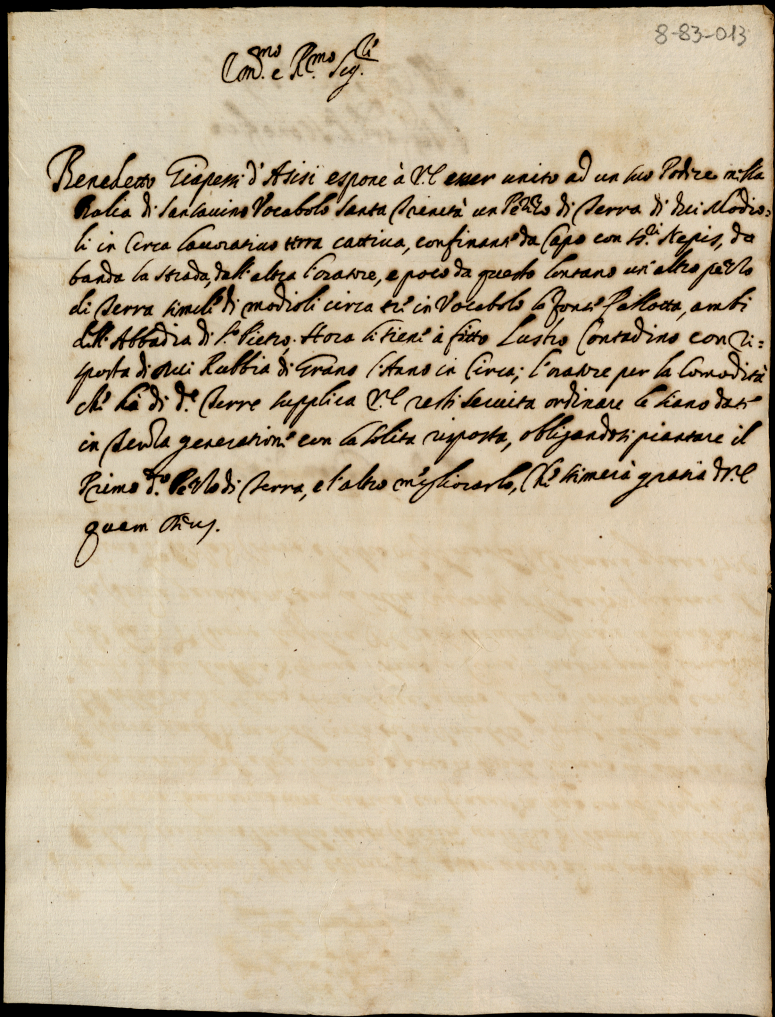 8-83-013
e R.mo Sig.
Benedetto d'Asisi espone à V.E esser unito ad un suo Podere nella
Balia di Sansavino Vocabolo Santa Trinetà un Pezzo di Terra di dui Modio=
li in Circa lavorativo terra cattiva, confinante da Capo con Nepis, da
banda la strada, dall'altra l'oratore, e poco da questo lontano un'altro pezzo
di Terra simile di modioli circa trè in Vocabolo la fonte Pallotta, ambi
dell'Abbadia di S. Pietro. Hora li tiene à fitto Lustro Contadino con ri=
sposta di Rubbia di Grano l'Anno in Circa; l'oratore per la Comodità
che hà di d.e Terre supplica V.E resti servita ordinare le siano date
in Terza generatione con la solita risposta, obligandosi piantare il
Primo d.o Pezzo di Terra, e l'altro migliorarlo, Che stimerà gratia d V.E
quam Deus.